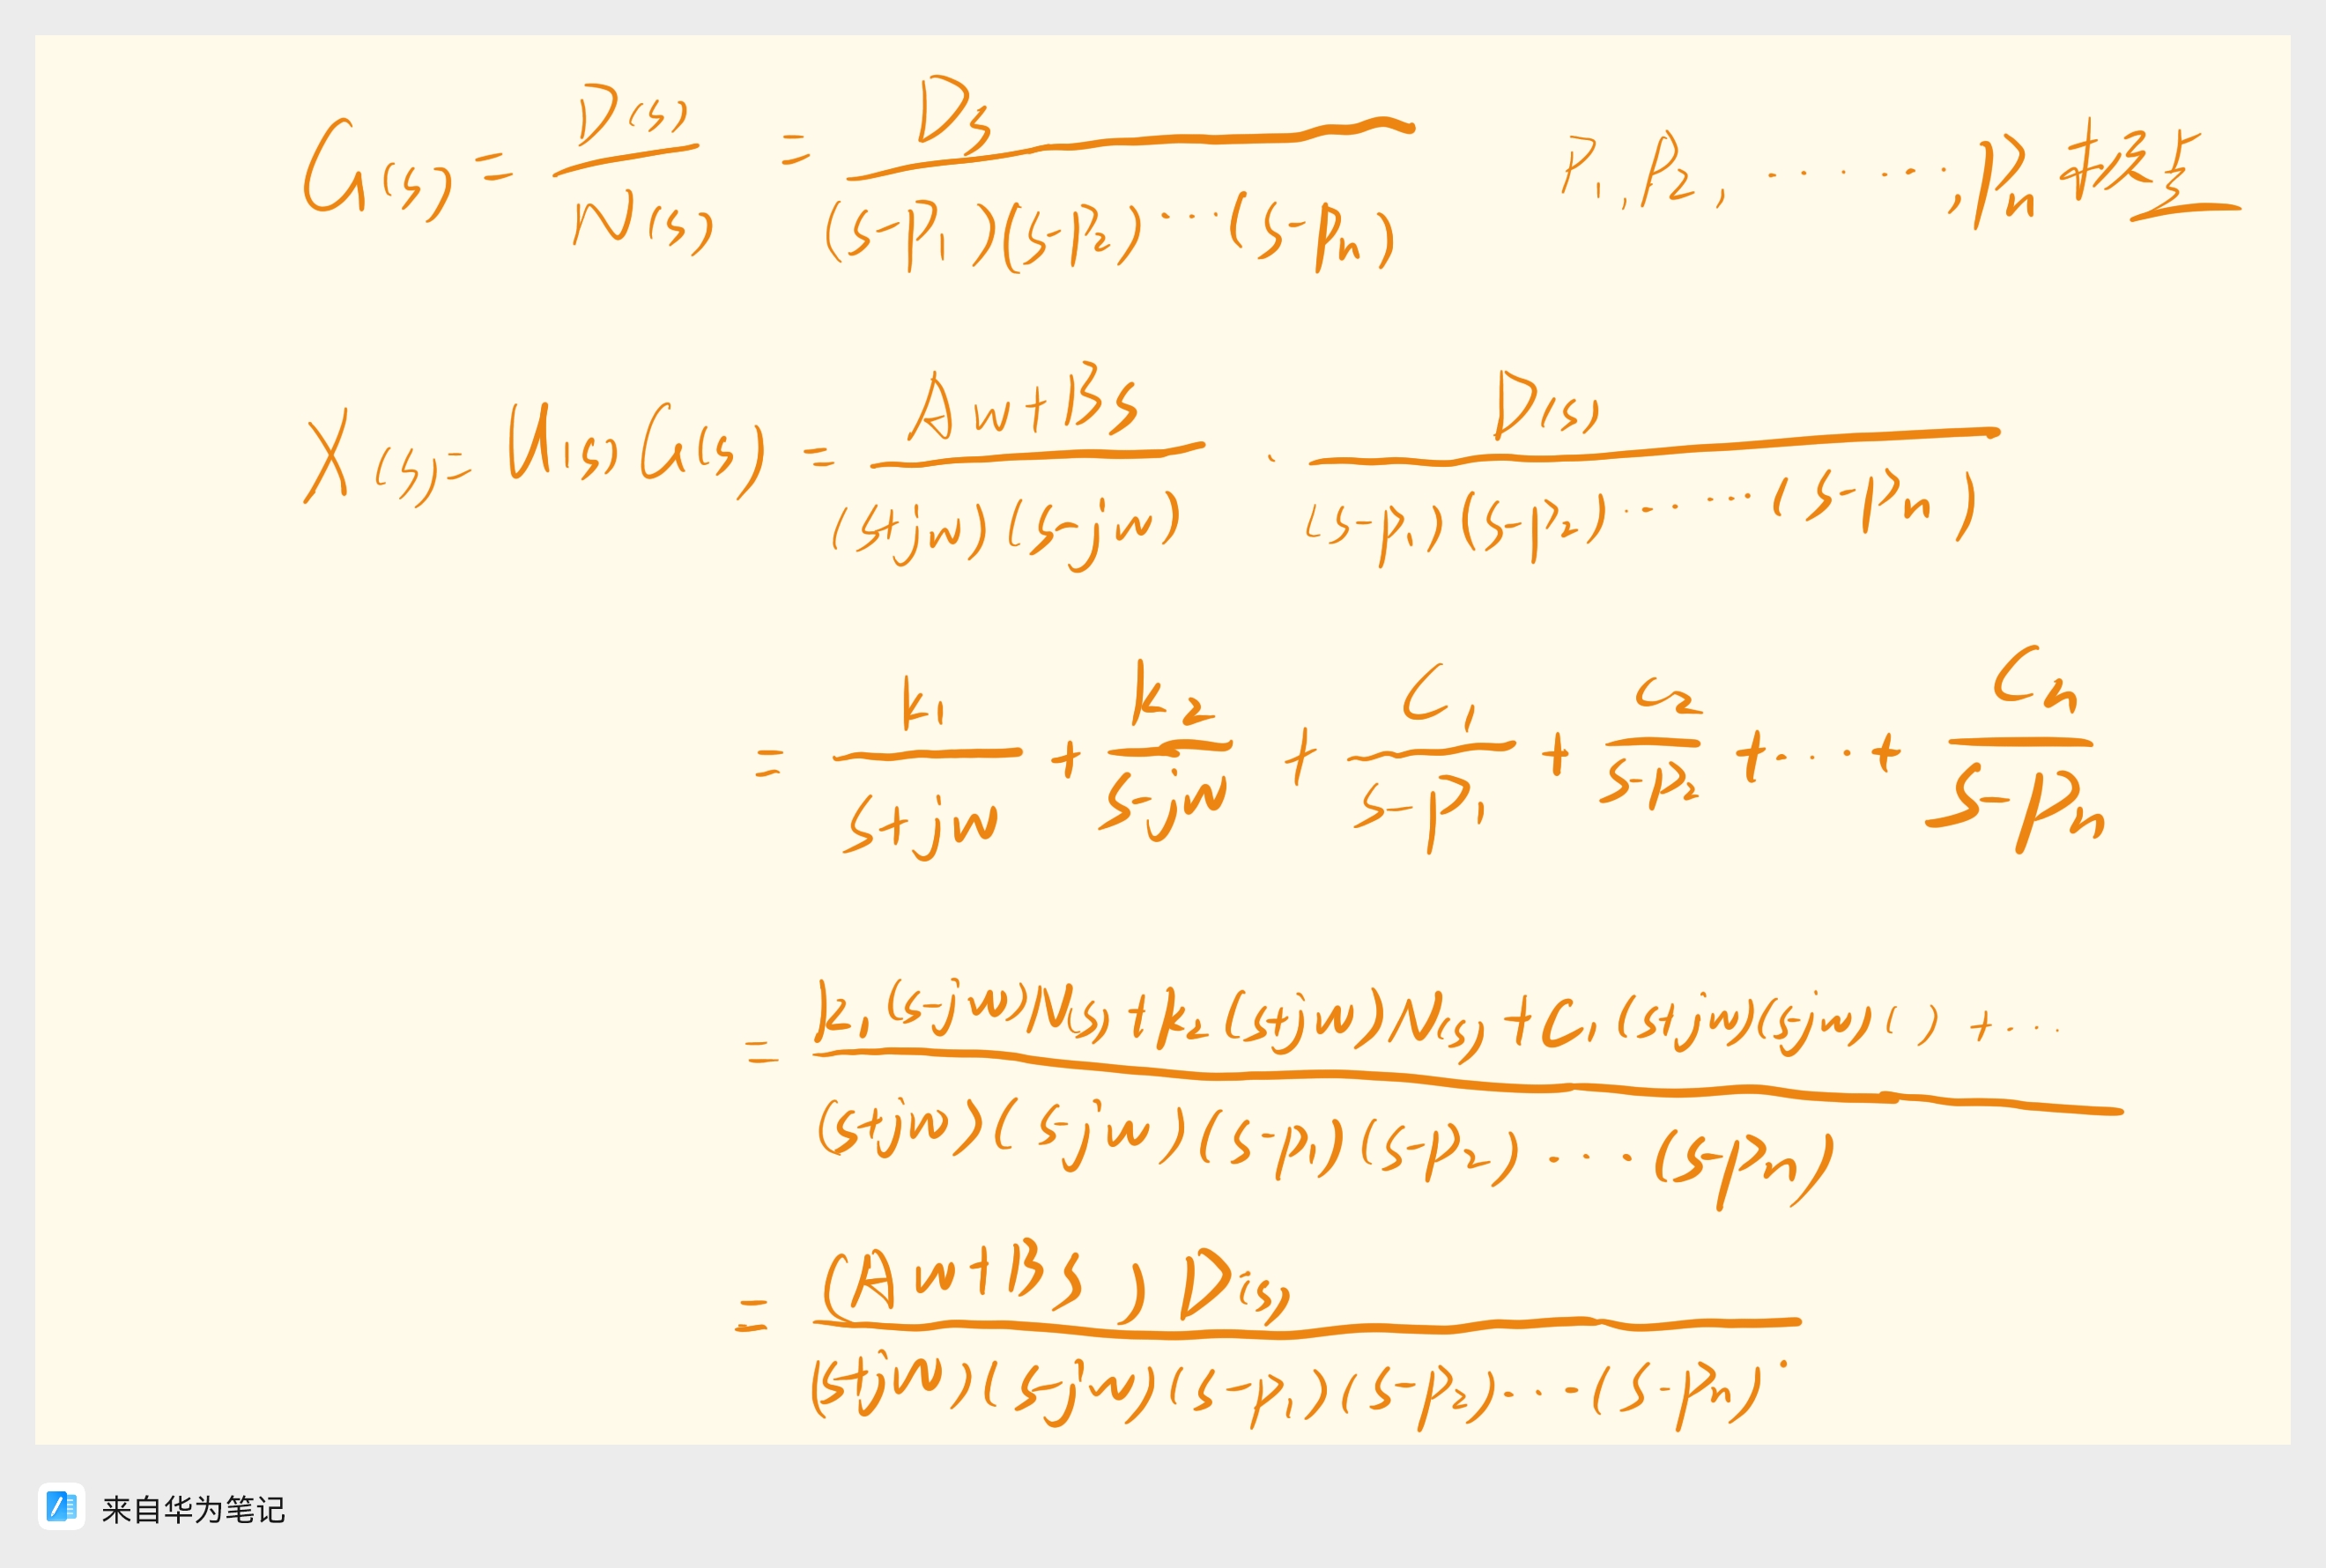 G(s) = D(s) / N(s) = Ds / (s-p1)(s-p2)···(s-pn) P1, P2, ······, Pn 极点
X(s) = U(s)G(s) = Aw+Bs / (s+jw)(s-jw) · D(s) / (s-p1)(s-p2)······(s-pn)
= k1 / s+jw + k2 / s-jw + C1 / s-p1 + C2 / s-p2 + ··· + Cn / s-pn
= k1(s-jw)N(s)+k2(s+jw)N(s)+C1(s+jw)(s-jw)( )+··· / (s+jw)(s-jw)(s-p1)(s-p2)···(s-pn)
= (Aw+Bs)D(s) / (s+jw)(s-jw)(s-p1)(s-p2)···(s-pn)
来自华为笔记